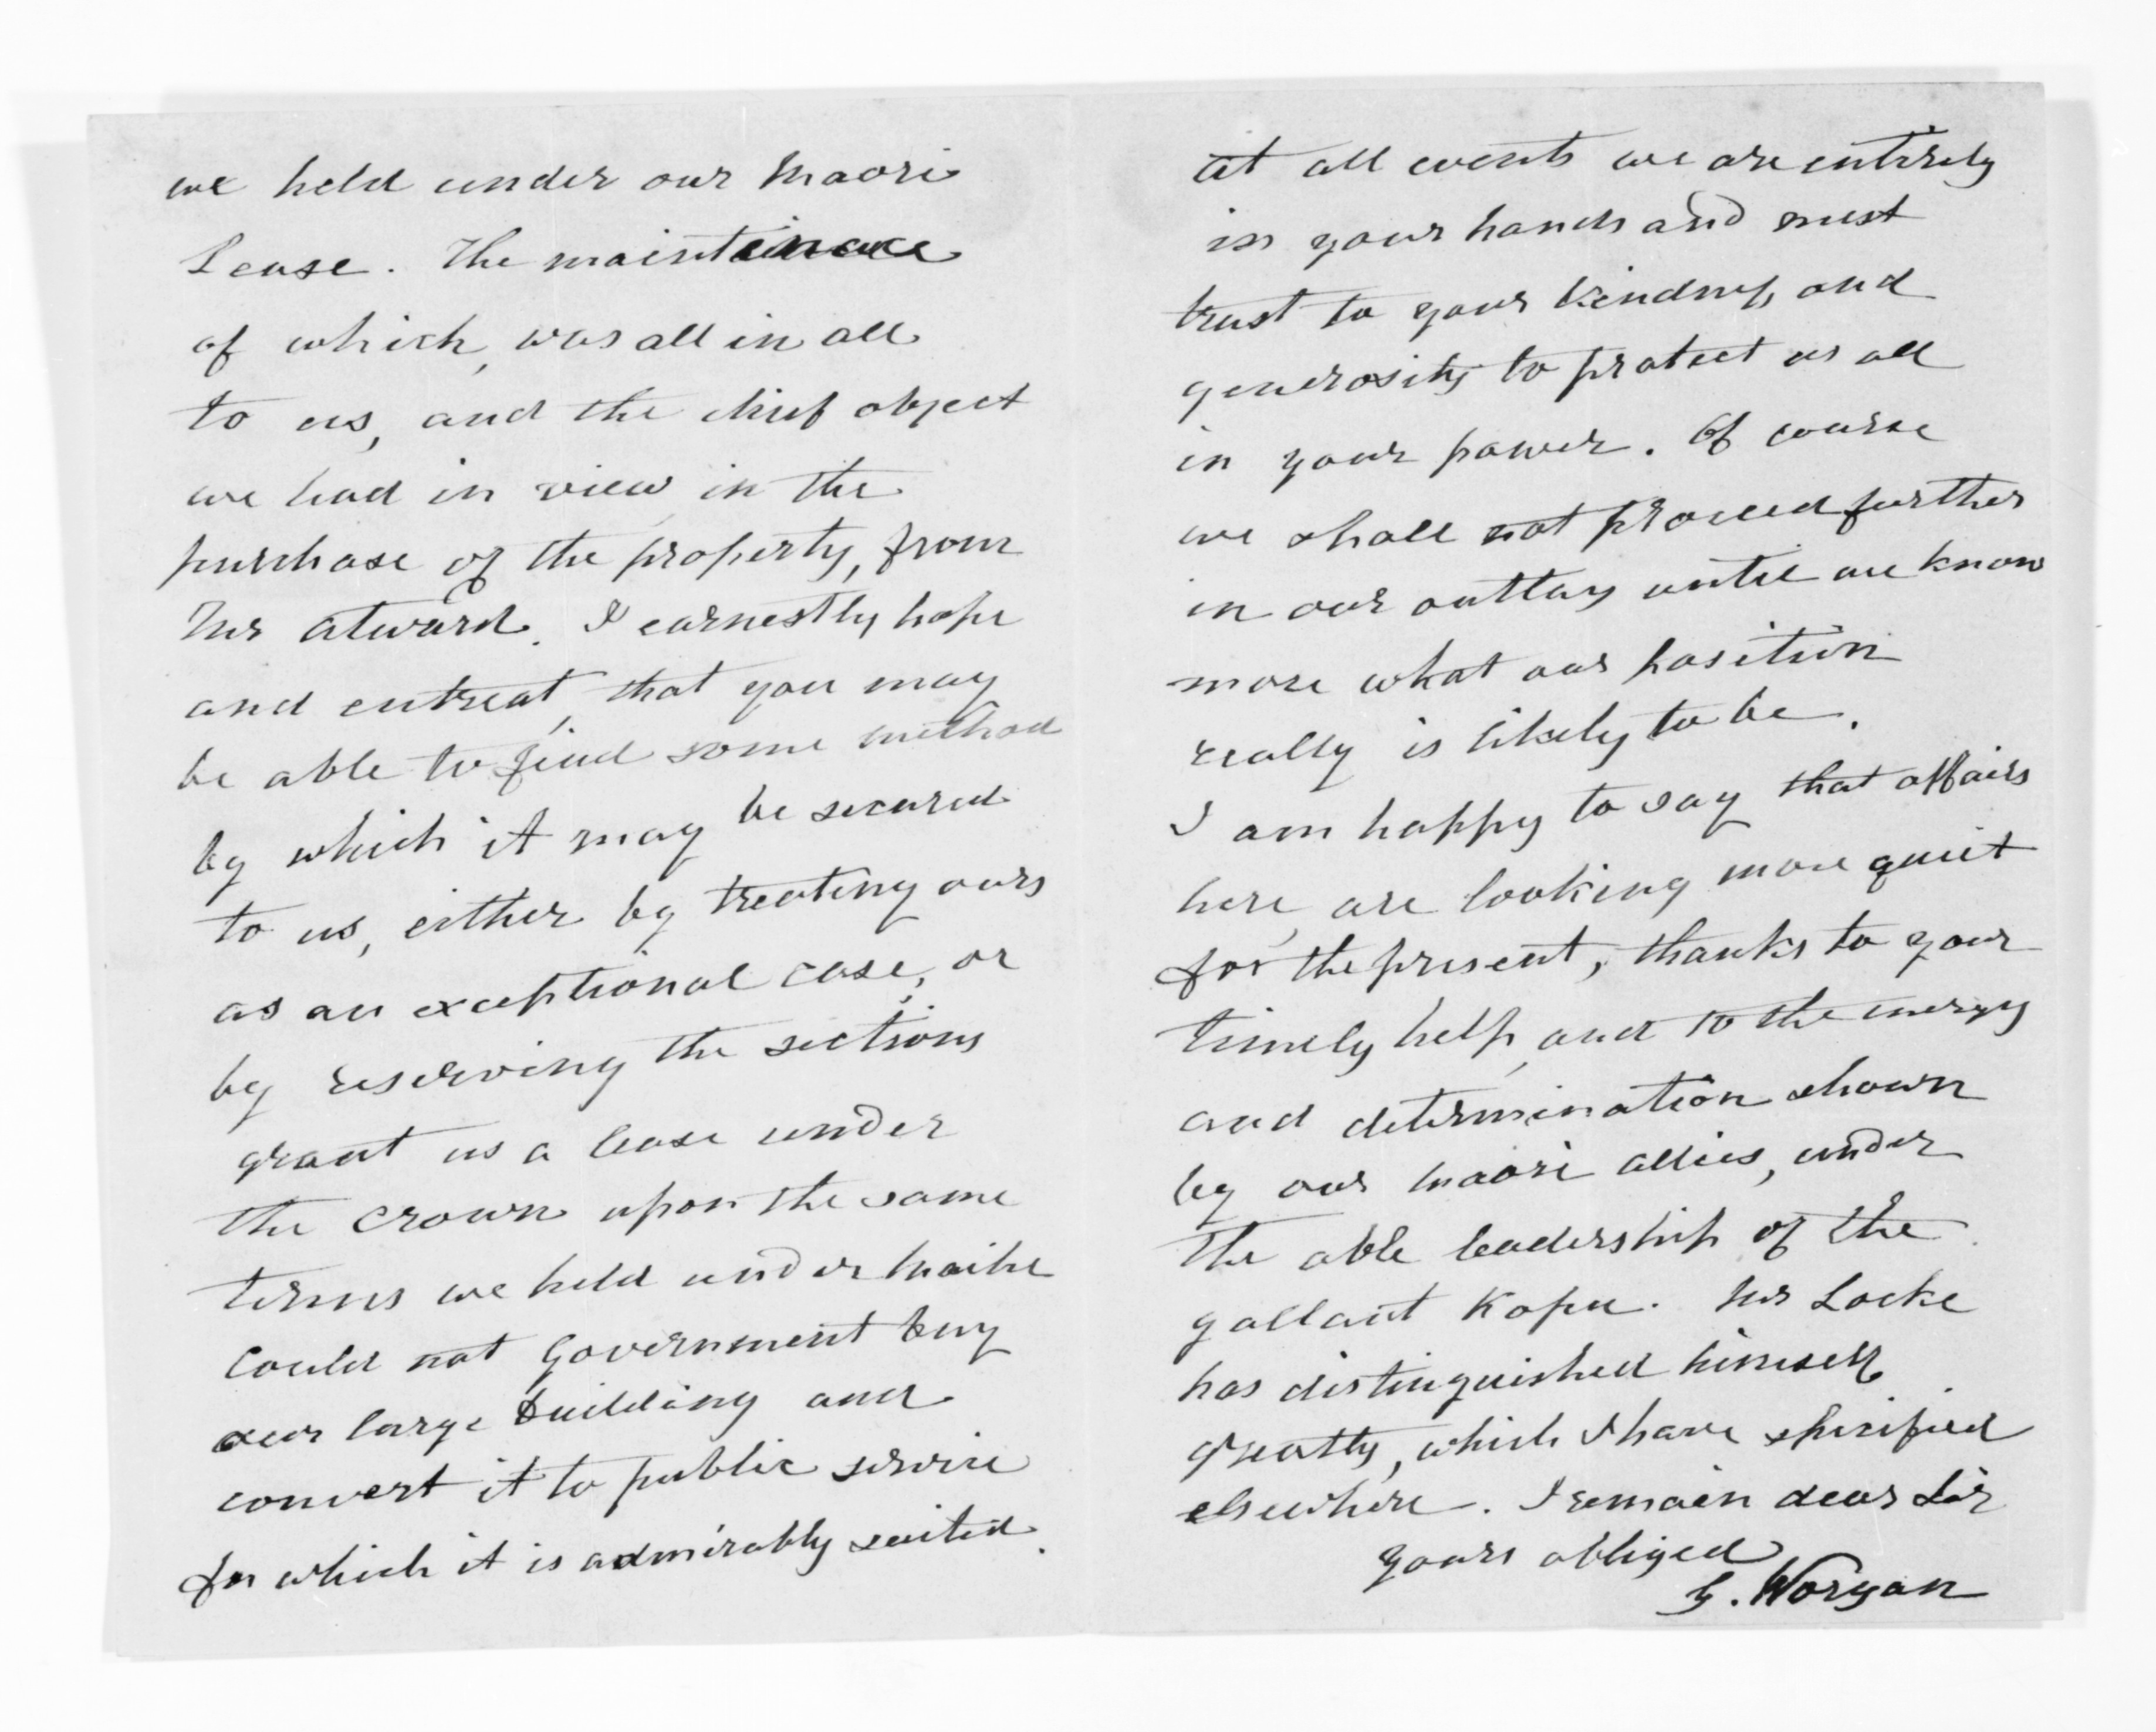 we held under our Maori
Lease. The maintenance
of which, was all in all
to us, and the chief object
we had in view in the
purchase of the property, from
Mr Atward. I earnestly hope
and entreat, that you may
be able to find some method
by which it may be secured
to us, either by treating ours
as an exceptional case, or
by reserving the sections
grant us a lease under
the Crown upon the same
terms we held under Maihi
Could not Government buy
our large building and
convert it to public service
for which it is admirably suited.
At all events we are entirely
in your hands and must
trust to your kindness and
generosity to protect us all
in your power. Of course
we shall not proceed further
in our outlay until we know
more what our position
really is likely to be.
I am happy to say that affairs
here, are looking more quiet
for the present, thanks to your
timely help, and to the energy
and determination shown
by our Maori allies, under
the able leadership of the
gallant Kopu. Mr Locke
has distinguished himself
greatly, which I have specified
elsewhere. I remain dear Sir
yours obliged
G. Worgan